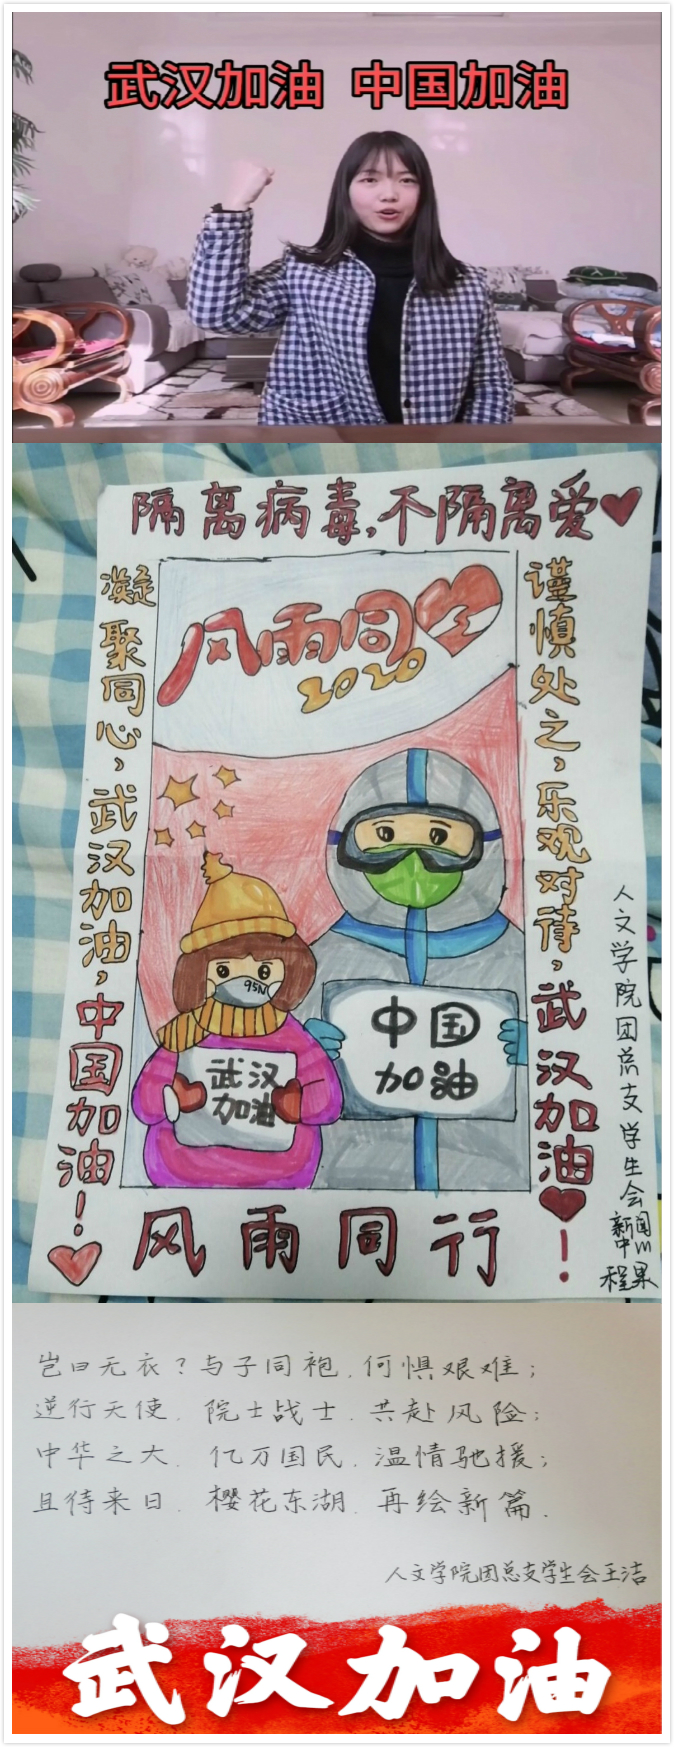 武汉加油 中国加油
隔离病毒,不隔离爱
凝聚同心,武汉加油,中国加油!
风雨同心
2020
谨慎处之,乐观对待,武汉加油!
95N
武汉
加油
中国
加油
人文学院团总支学生会
新闻中心
程果
风雨同行
岂曰无衣?与子同袍.何惧艰难;
逆行天使.院士战士.共赴风险;
中华之大.亿万国民.温情驰援;
且待来日.樱花东湖.再绘新篇.
人文学院团总支学生会王洁
武汉加油